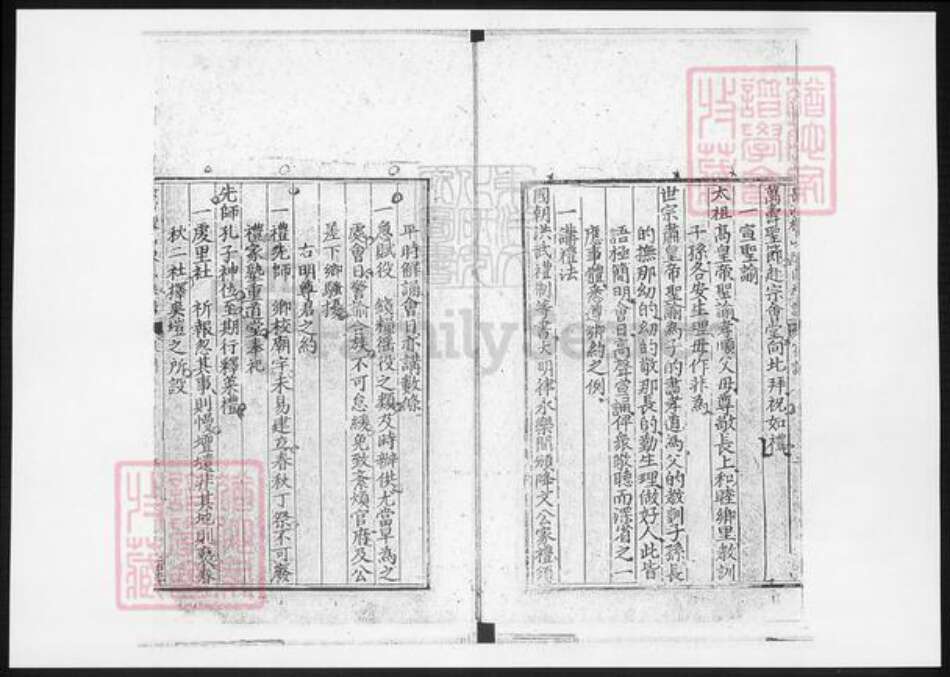 萬壽聖節赴宗會堂向北拜祝如禮
一宣聖諭
太祖高皇帝聖諭孝順父母尊敬長上和睦鄉里教訓
子孫各安生理毋作非為
世宗肅皇帝聖諭為子的盡孝道為父的教訓子孫長
的撫那幼的幼的敬那長的勤生理做好人此皆
語極簡明會日高聲宣誦俾衆敬聽而深省之一
應事體悉遵鄉約之例
一講禮法
國朝洪武禮制等書大明律永樂間頒降文公家禮
平時解誦會日亦講數條
一急賦役 錢糧徭役之類及時辦供尤當早為之
處會日警諭合族不可怠緩免致紊煩官府及公
差下鄉騷擾
右明尊君之約
一禮先師 鄉校廟宇未易建立春秋丁祭不可廢
禮家塾重道堂奉祀
先師孔子神位至期行釋菜禮
一處里社 祈報忽其事則慢壇壝非其地則褻春
秋二社擇奠壇之所設
家
譜學會
收藏
FamilySearch